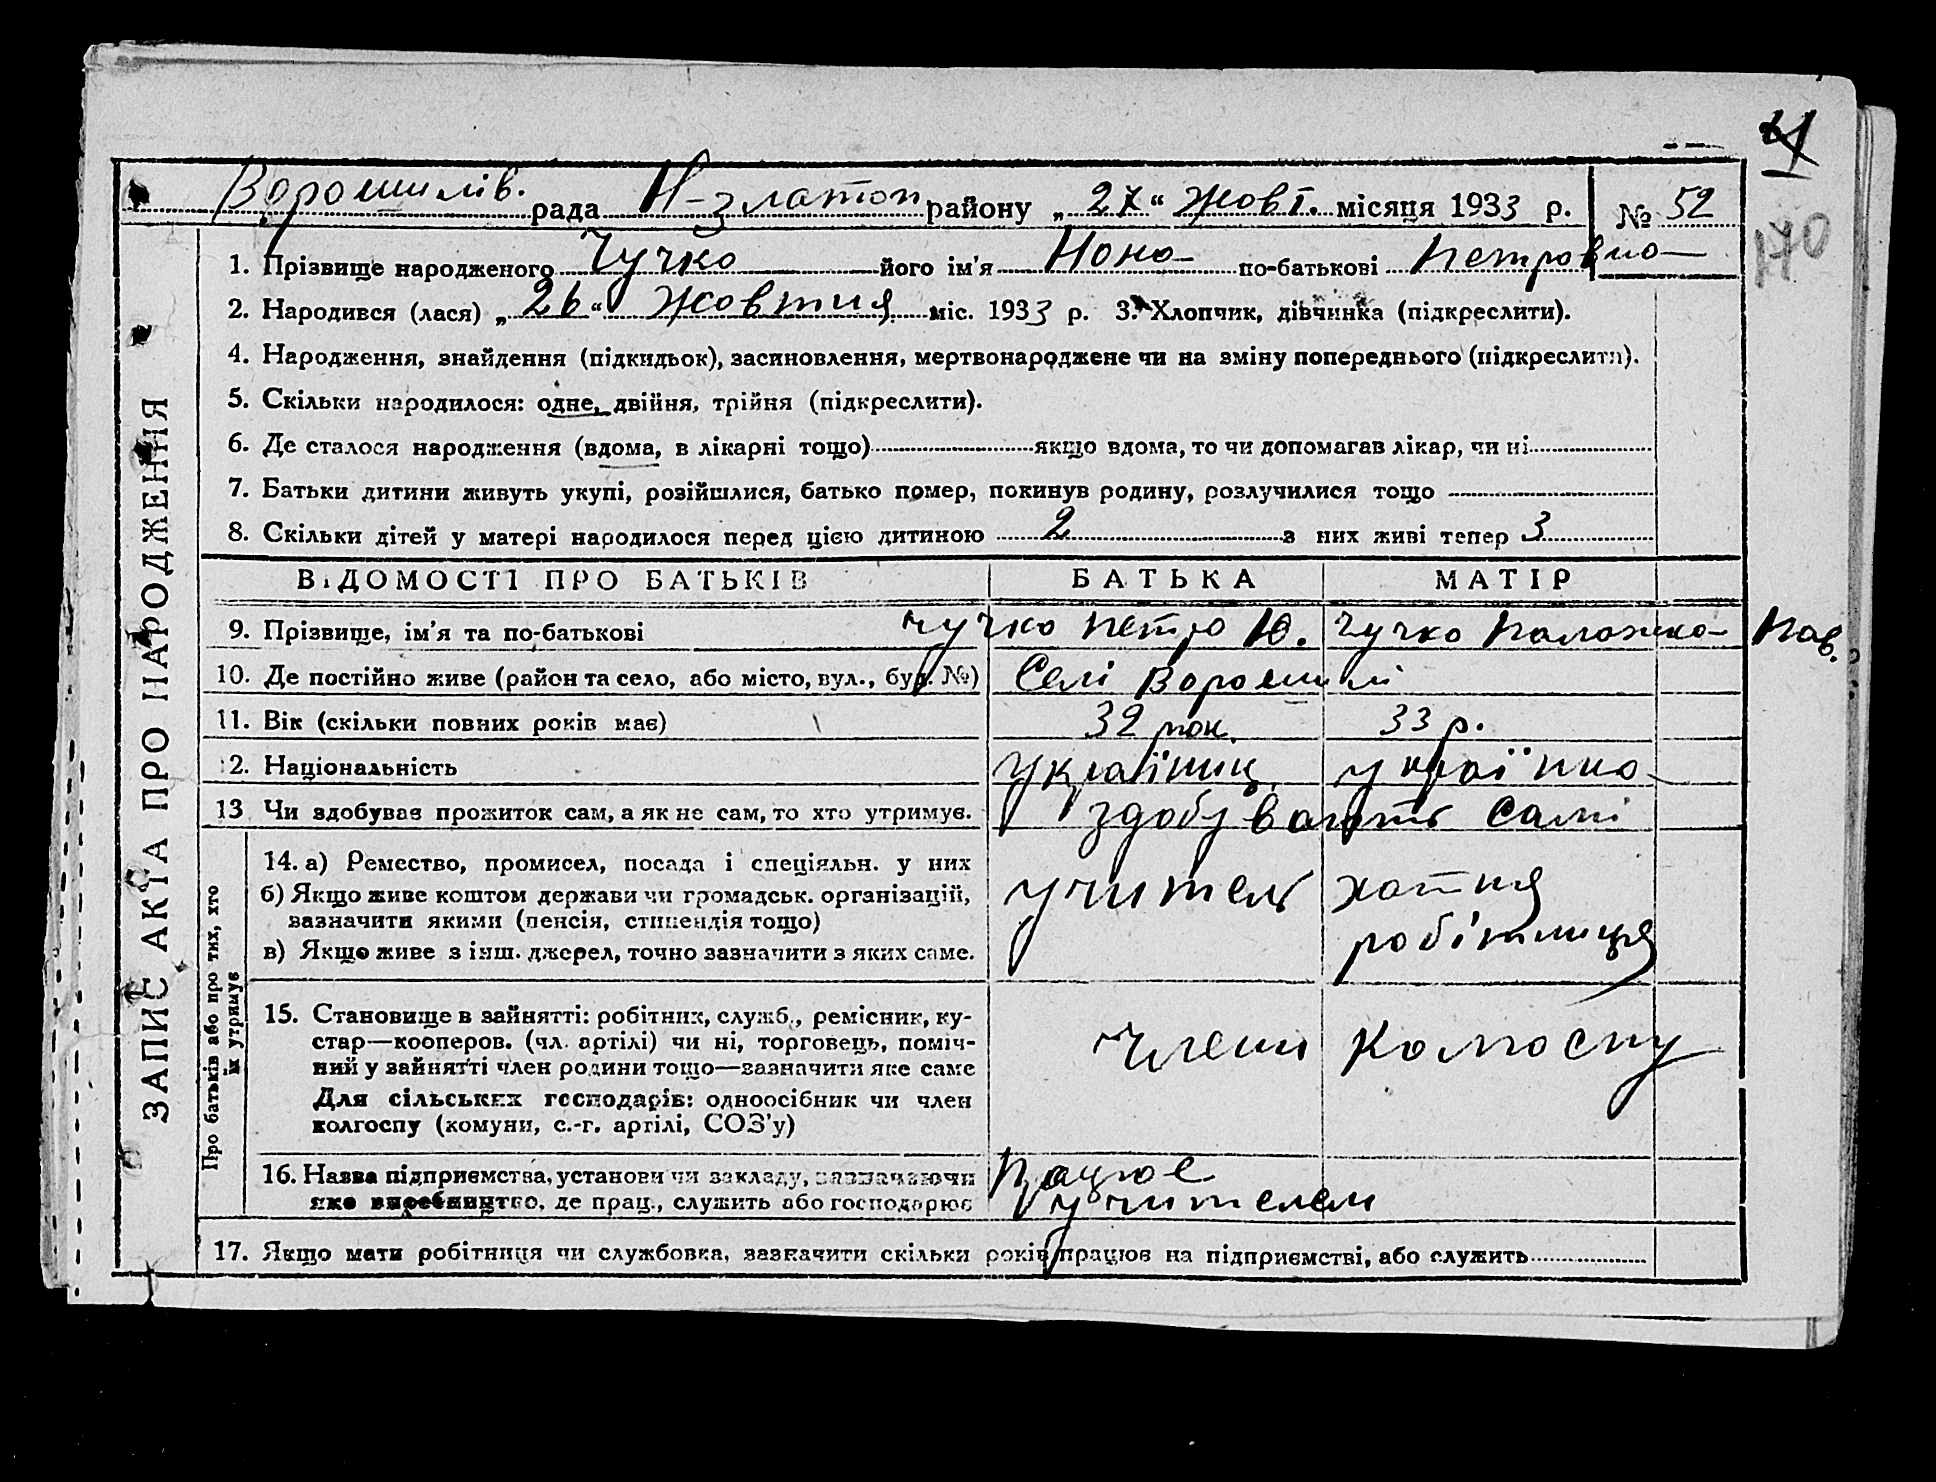 41
Ворошилів. рада Н-златоп району „27“ Жовт. місяця 1933 р. № 52
170
1. Прізвище народженого Чучко його ім'я Нона по-батькові Петровна
2. Народився (лася) „26“ Жовтня міс. 1933 р. 3. Хлопчик, дівчинка (підкреслити).
4. Народження, знайдення (підкидьок), засиновлення, мертвонароджене чи на зміну попереднього (підкреслити).
5. Скільки народилося: одне, двійня, трійня (підкреслити).
6. Де сталося народження (вдома, в лікарні тощо) якщо вдома, то чи допомагав лікар, чи ні
7. Батьки дитини живуть укупі, розійшлися, батько помер, покинув родину, розлучилися тощо
8. Скільки дітей у матері народилося перед цією дитиною 2 з них живі тепер 3
ВІДОМОСТІ ПРО БАТЬКІВ БАТЬКА МАТІР
9. Прізвище, ім'я та по-батькові Чучко Петро Ю. Чучко Палажка Пав.
10. Де постійно живе (район та село, або місто, вул., буд. №) Селі Ворошилі
11. Вік (скільки повних років має) 32 рок. 33 р.
12. Національність Українц українка
13 Чи здобував прожиток сам, а як не сам, то хто утримує. здобувають самі
14. а) Ремество, промисел, посада і спеціяльн. у них
б) Якщо живе коштом держави чи громадськ. організацій,
зазначити якими (пенсія, стипендія тощо)
в) Якщо живе з інш. джерел, точно зазначити з яких саме.
учитель хатня
робітниця
15. Становище в зайнятті: робітник, служб., ремісник, ку-
стар—кооперов. (чл. артілі) чи ні, торговець, поміч-
ний у зайнятті член родини тощо—зазначити яке саме
Для сільських господарів: одноосібник чи член
колгоспу (комуни, с.-г. артілі, СОЗ'у)
члени колгоспу
16. Назва підприємства, установи чи закладу, зазначаючи
яке виробництво, де прац., служить або господарює
Працює
учителем
17. Якщо мати робітниця чи службовка, зазначити скільки років працює на підприємстві, або служить
ЗАПИС АКТА ПРО НАРОДЖЕННЯ
Про батьків або про тих, хто
їх утримує